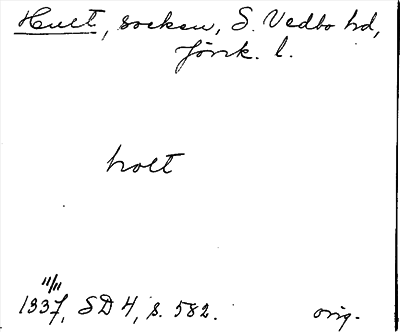 Hult, socken, S. Vedbo hd,
Jönk. l.
holt
11/11
1337, SD 4, s. 582. orig.